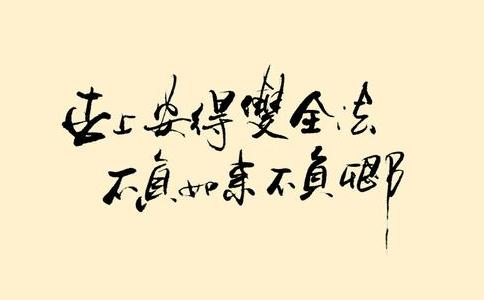 世上安得雙全法
不負如來不負卿